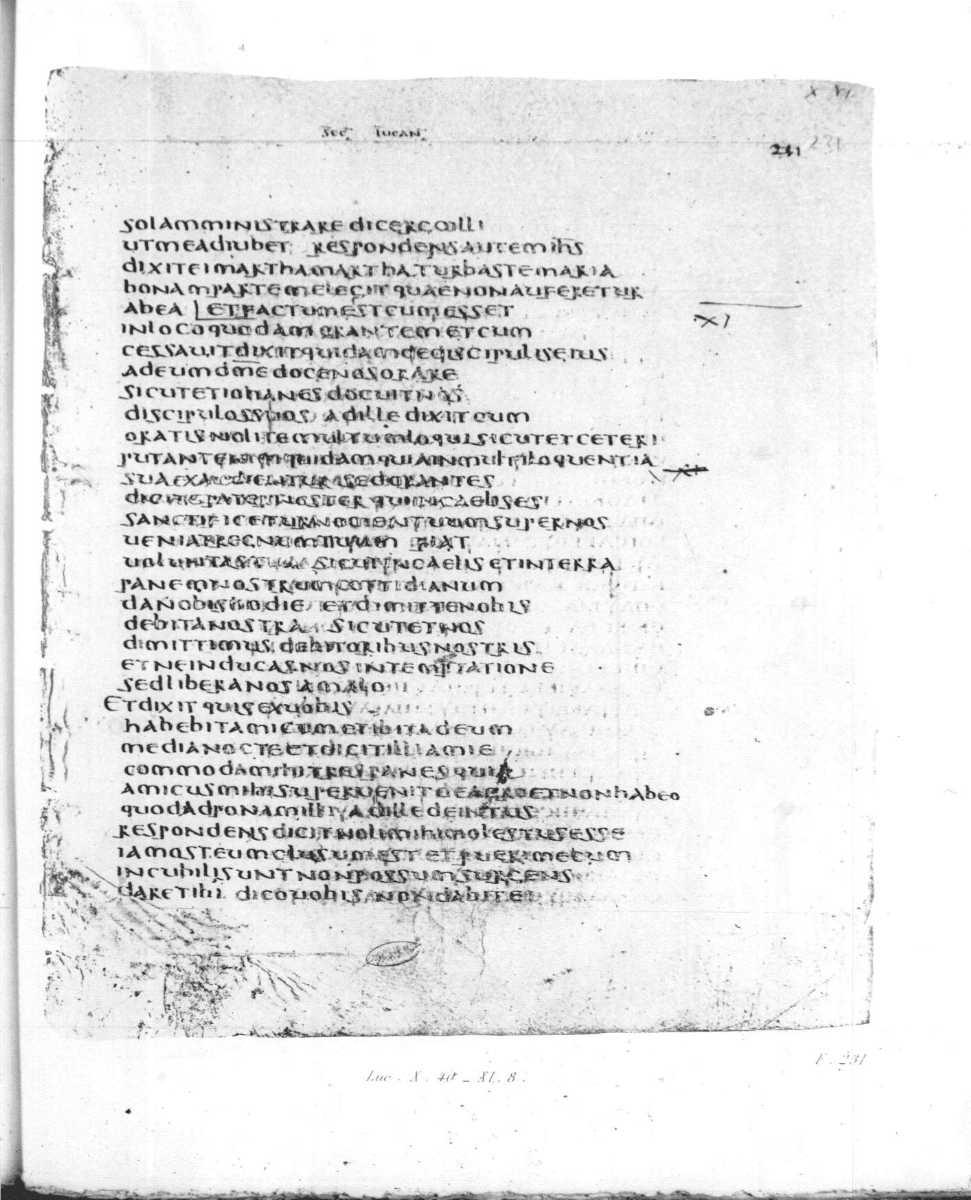 X XI
SEC LUCAN
231
231
SOLAMMINISTRARE DIC ERGO ILLI
UT ME ADIUBET RESPONDENS AUTEM IHS
DIXIT EI MARTHA MARTHA TURBAS TE MARIA
BONAM PARTEM ELEGIT QUAE NON AUFERETUR
AB EA ET FACTUM EST CUM ESSET
XI
IN LOCO QUODAM ORANTEM ET CUM
CESSAVIT DIXIT QUIDAM DE DISCIPULIS EIUS
AD EUM DME DOCE NOS ORARE
SICUT ET IOHANES DOCUIT
DISCIPULOS SUOS AD ILLE DIXIT CUM
ORATIS NOLITE MULTUM LOQUI SICUT ET CETERI
PUTANT ENIM QUIDAM QUIA IN MULTILOQUENTIA
XI
SUA EXAUDIENTUR SED ORANTES
DICITE PATER NOSTER QUI IN CAELIS ES
SANCTIFICETUR NOMEN TUUM SUPER NOS
UENIAT REGNUM TUUM FIAT
UOLUNTAS TUA SICUT IN CAELIS ET IN TERRA
PANEM NOSTRUM COTTIDIANUM
DA NOBIS HODIE ET DIMITTE NOBIS
DEBITA NOSTRA SICUT ET NOS
DIMITTIMUS DEBITORIBUS NOSTRIS
ET NE INDUCAS NOS IN TEMPTATIONE
SED LIBERA NOS A MALO
ET DIXIT QUIS EX UOBIS
HABEBIT AMICUM ET IBIT AD EUM
MEDIA NOCTE ET DICIT ILLI AMICE
COMMODA MIHI TRES PANES QUIA
AMICUS MIHI SUPERUENIT DE AGRO ET NON HABEO
QUOD ADPONAM ILLI AD ILLE DE INTUS
RESPONDENS DICIT NOLI MIHI MOLESTUS ESSE
IAM OSTEUM CLUSUM EST ET PUERI MECUM
IN CUBILI SUNT NON POSSUM SURGENS
DARE TIBI DICO UOBIS NON DABIT EI
Luc. X. 40 - XI. 8.
F. 231